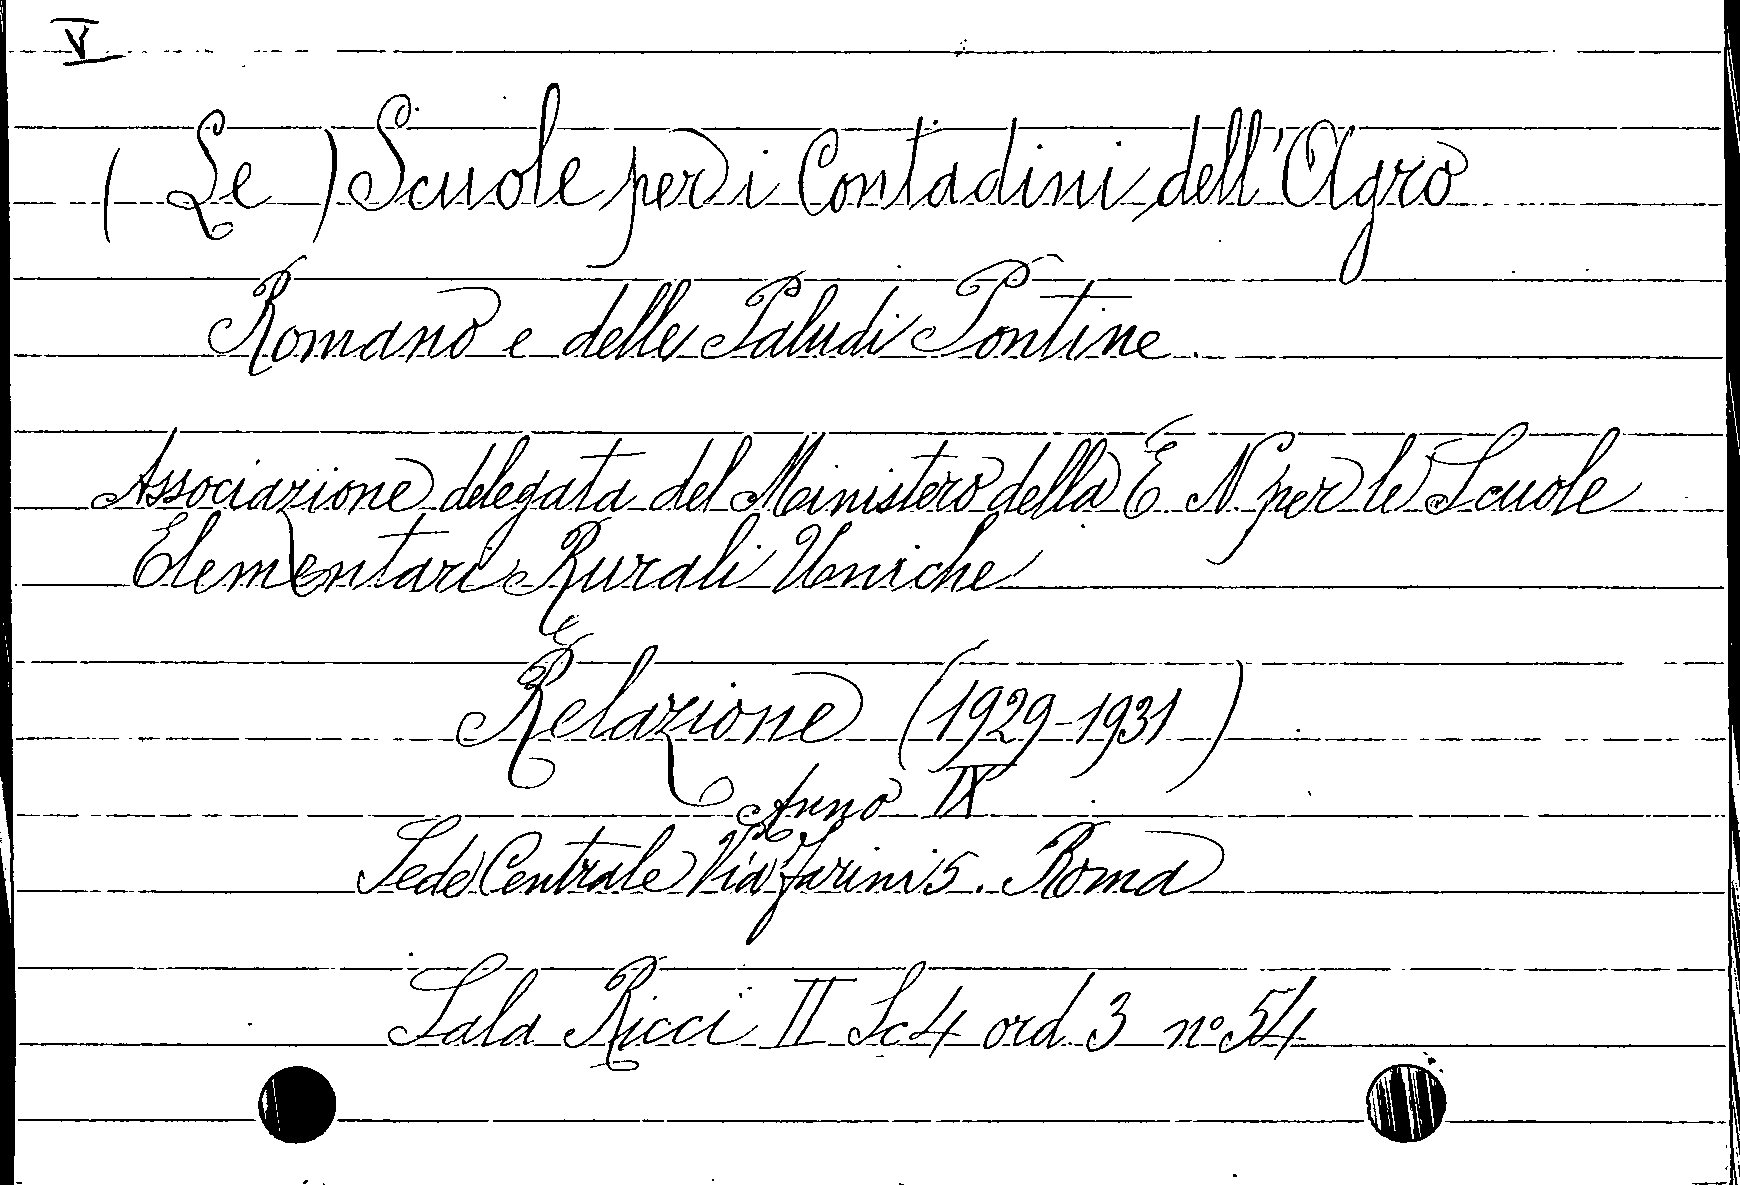 V
(Le) Scuole per i Contadini dell'Agro
Romano e delle Paludi Pontine.
Associazione delegata del Ministero della E N per le Scuole
Elementari Rurali Uniche
Relazione (1929-1931)
Anno IX
Sede Centrale Via Farini 5. Roma
Sala Ricci II Sc 4 ord. 3 n° 54